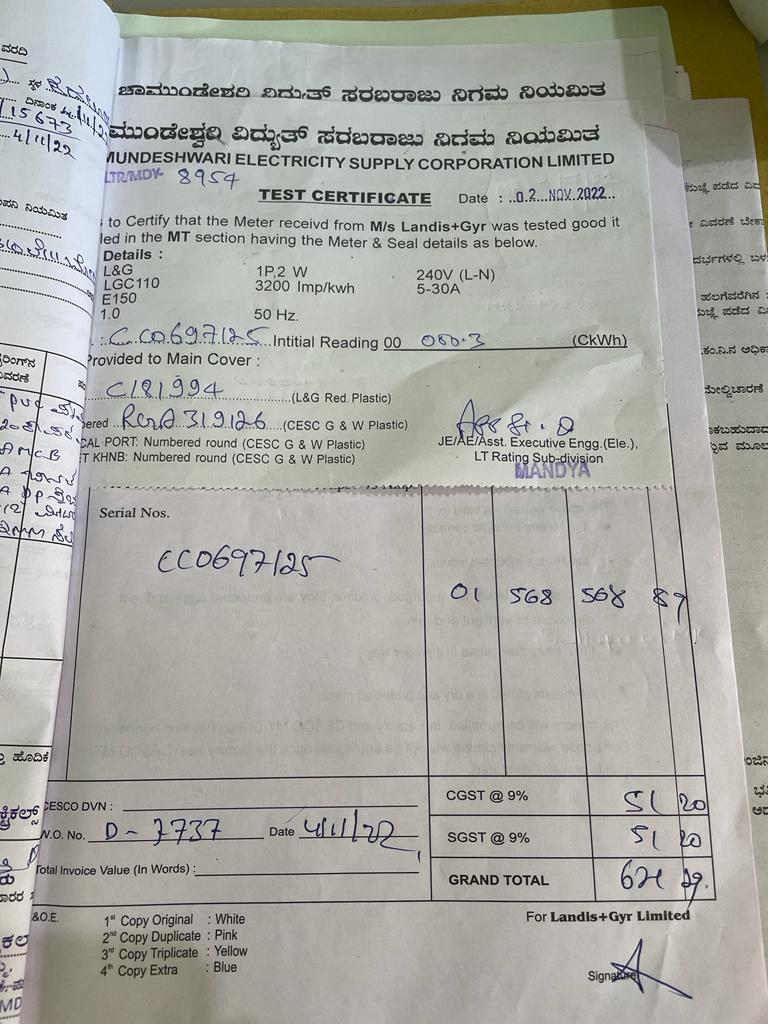 ಚಾಮುಂಡೇಶ್ವರಿ ವಿದ್ಯುತ್ ಸರಬರಾಜು ನಿಗಮ ನಿಯಮಿತ
ಮುಂಡೇಶ್ವರಿ ವಿದ್ಯುತ್ ಸರಬರಾಜು ನಿಗಮ ನಿಯಮಿತ
MUNDESHWARI ELECTRICITY SUPPLY CORPORATION LIMITED
LTR/MDY- 8954
TEST CERTIFICATE Date : 02 NOV 2022
to Certify that the Meter receivd from M/s Landis+Gyr was tested good it
led in the MT section having the Meter & Seal details as below.
Details :
L&G 1P,2 W 240V (L-N)
LGC110 3200 Imp/kwh 5-30A
E150
1.0 50 Hz.
CC0697125 Intitial Reading 00 000.3 (CkWh)
Provided to Main Cover :
C181994 (L&G Red Plastic)
bered 319126 (CESC G & W Plastic)
CAL PORT: Numbered round (CESC G & W Plastic)
T KHNB: Numbered round (CESC G & W Plastic)
JE/AE/Asst. Executive Engg.(Ele.),
LT Rating Sub-division
MANDYA
Serial Nos.
CC0697125 01 568 568 87
CESCO DVN :
W.O. No. D-7737 Date 4/11/22
Total Invoice Value (In Words) :
CGST @ 9% 51 20
SGST @ 9% 51 20
GRAND TOTAL
&O.E.
1st Copy Original : White
2nd Copy Duplicate : Pink
3rd Copy Triplicate : Yellow
4th Copy Extra : Blue
For Landis+Gyr Limited
Signature
ವರದಿ
ದಿನಾಂಕ
15673
4/11/22
ನಿಯಮಿತ
ವಿವರಣೆ
ಹೊದಿಕೆ